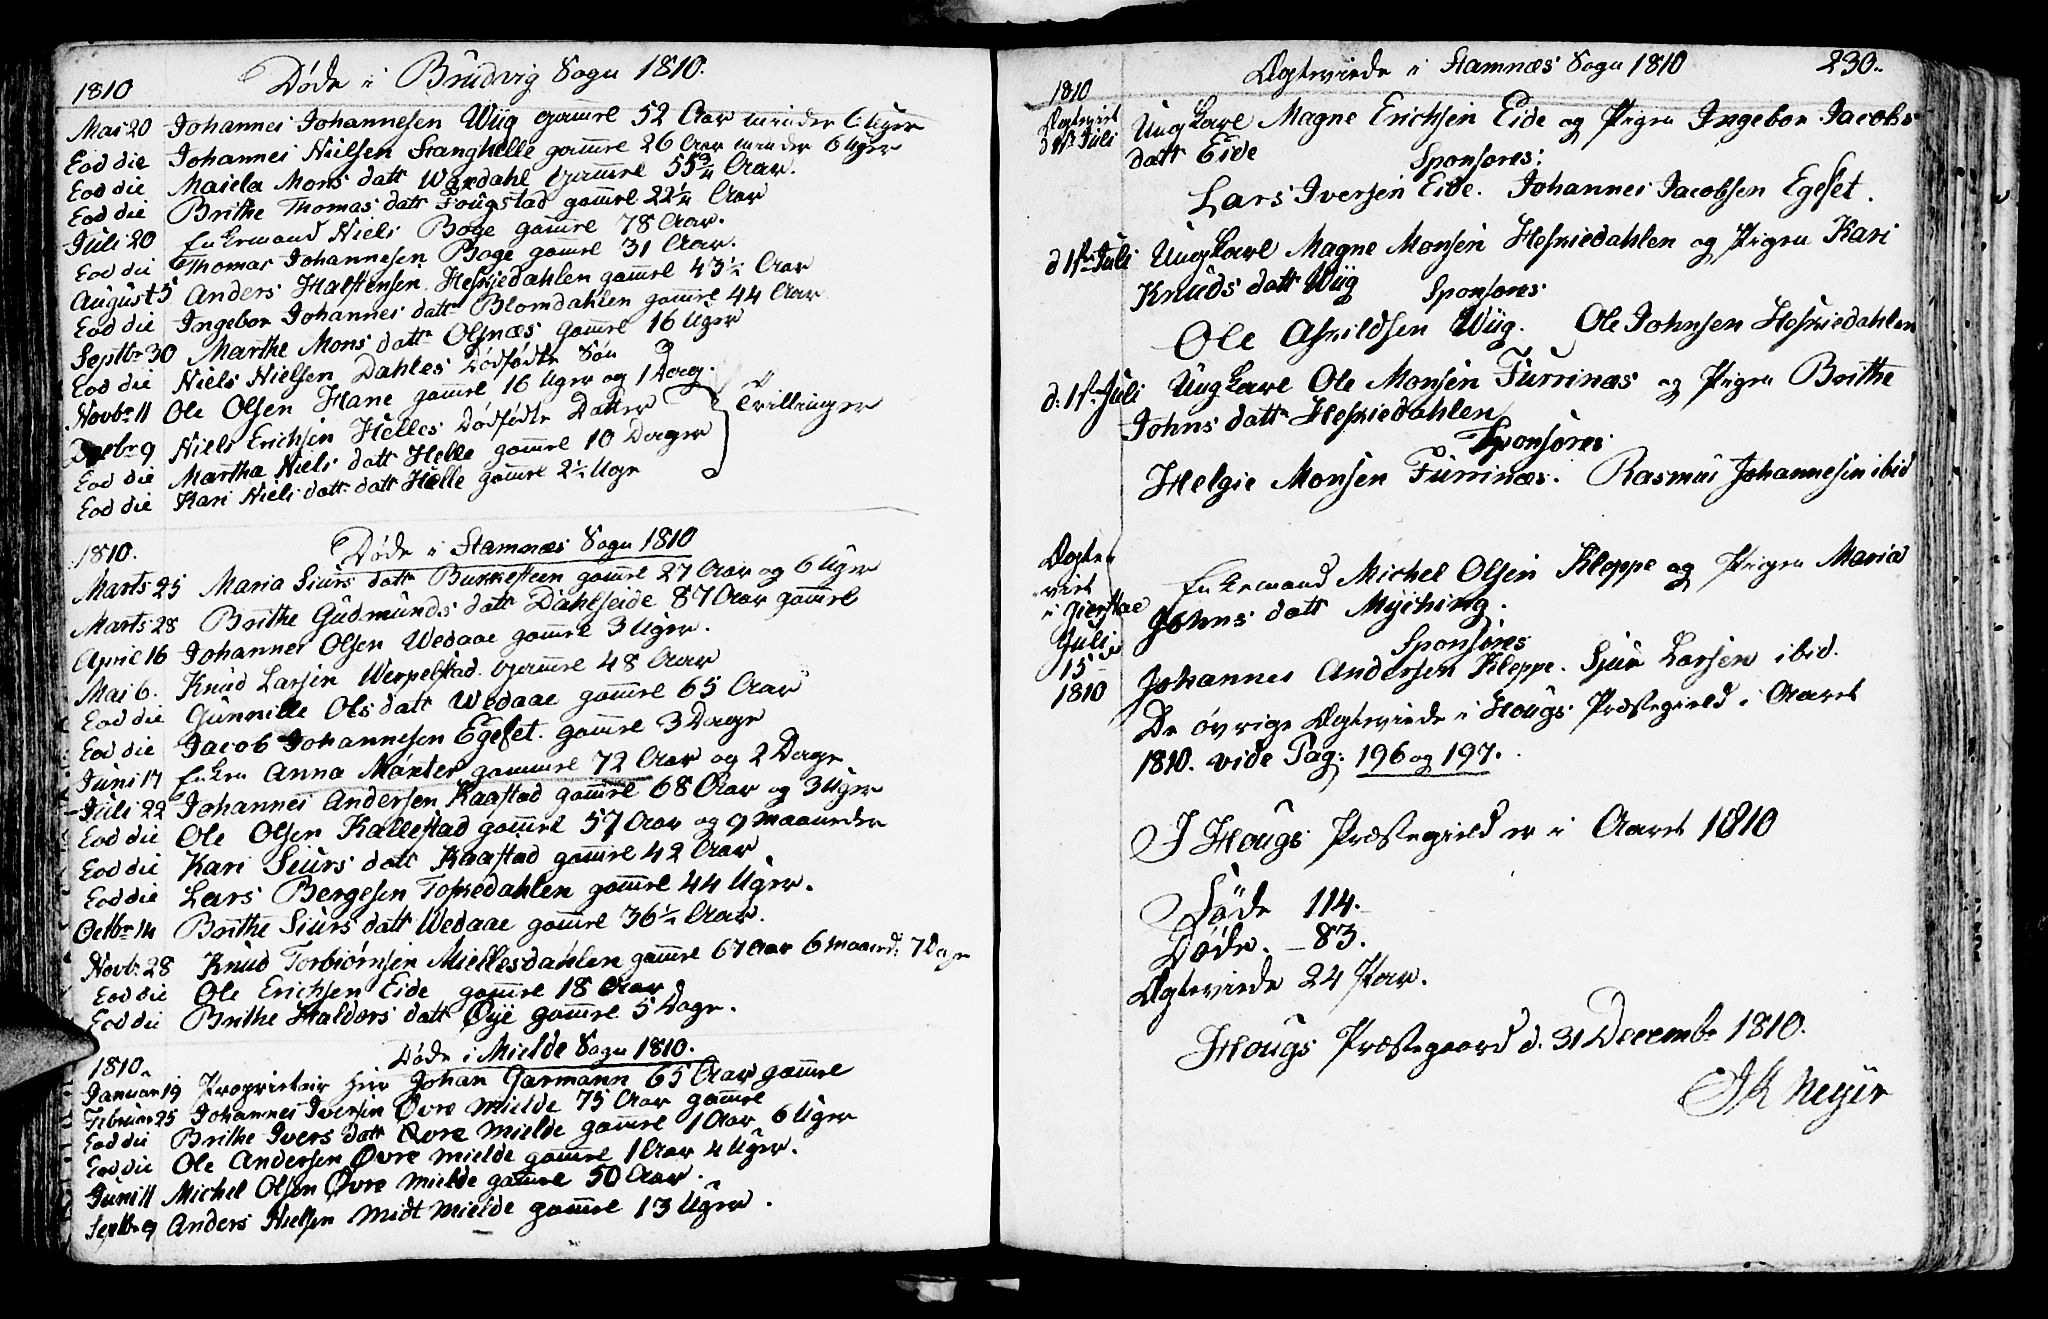 1810 Døde i Brudvig Sogn 1810.
Mai 20 Johannes Johannesen Wiig gamel 52 Aar minder 6 Uger
Eod die Johannes Nielsen Stanghelle gamel 26 Aar minder 6 Uger
Eod die Maiela Mons datt Wardahl gamel 55 3/4 Aar.
Eod die Brithe Thomas datt Fougstad gamel 22 1/4 Aar
Juli 20 Enkemand Niels Boge gamel 78 Aar.
Eod die Thomas Johannesen Boge gamel 31 Aar.
August 5 Anders Halstensen Hesjedahlen gamel 43 1/2 Aar
Eod die Ingebor Johannes datt Blomdahlen gamel 44 Aar
Septbr 30 Marthe Mons datt Olsnæs gamel 16 Uger
Eod die Niels Nielsen Dahles Dødfødte Søn
Novbr 11 Ole Olsen Hane gamel 16 Uger og 1 Dag.
Decbr 9 Niels Erichsen Helles Dødfødte Datter
Trillinger
Eod die Martha Niels datt Helle gamel 10 Dager
Eod die Kari Niels datt datt Helle gamel 2 1/2 Uge
1810. Døde i Stamnæs Sogn 1810
Marts 25 Maria Siurs datt Bukkesteen gamel 27 Aar og 6 Uger
Marts 28 Brithe Gudmunds datt Dahlseide 87 Aar gamel
April 16 Johannes Olsen Wedaae gamel 3 Uger.
Mai 6. Knud Larsen Werpelstad gamel 48 Aar
Eod die Gunnille Ols datt Wedaae gamel 65 Aar
Eod die Jacob Johannesen Egeset. gamel 3 Dage
Juni 17 Enken Anna Maxter gammel 72 Aar og 2 Dage
Juli 22 Johannes Andersen Kaastad gamel 68 Aar og 3 Uger
Eod die Ole Olsen Kallestad gamel 57 Aar og 9 maaneder
Eod die Kari Siurs datt Kaastad gamel 42 Aar
Eod die Lars Bergesen Toskedahlen gamel 44 Uger.
Octbr 14 Brithe Siurs datt Wedaae gamel 36 1/2 Aar.
Novb. 28 Knud Torbiørnsen Miellesdahlen gamel 67 Aar 6 maaned. 7 Dage
Eod die Ole Erichsen Eide gamel 18 Aar
Eod die Brithe Haldors datt Øye gamel 5 Dage.
1810. Døde i Mielde Sogn 1810.
Januar 19 Proprietair Herr Johan Garmann 65 Aar gamel
Februar 25 Johannes Iversen Øvre Mielde 75 Aar gamel
Eod die Brithe Ivers datt Øvre Mielde gamel 1 Aar 6 Uger
Eod die Ole Andersen Øvre Mielde gamel 1 Aar 4 Uger.
Juni 11 Michel Olsen Øvre Mielde gamel 50 Aar.
Septbr 9 Anders Nielsen Midt Mielde gamel 13 Uger.
Ægteviede i Stamnæs Sogn 1810 230.
1810
Ægteviet
d 1ste Juli
Ungkarl Magne Erichsen Eide og Pigen Ingebor Jacobs
datt Eide Sponsores:
Lars Iversen Eide. Johannes Jacobsen Egeset.
d 1ste Juli Ungkarl Magne Monsen Heskiedahlen og Pigen Kari
Knuds datt Wiig Sponsores
Ole Askildsen Wiig. Ole Johnsen Heskiedahlen
d. 1ste Juli Ungkarl Ole Monsen Furrinæs og Pigen Brithe
Johns datt Heskiedahlen
Sponsores
Helgie Monsen Furrinæs. Rasmus Johannesen ibid
Ægte-
viet
i Gierstae
Juli
15
1810
Enkemand Michel Olsen Kleppe og Pigen Maria
Johns datt Myching.
Sponsores
Johannes Andersen Kleppe. Sjur Larsen ibid.
De øvrige Ægteviede i Hougs Præstegield i Aaret
1810. vide Pag: 196 og 197.
I Hougs Præstegield er i Aaret 1810
Føde 114.
Døde. – 83.
Ægteviede 24 Par.
Hougs Præstegaard d. 31 Decembr 1810.
Meyer